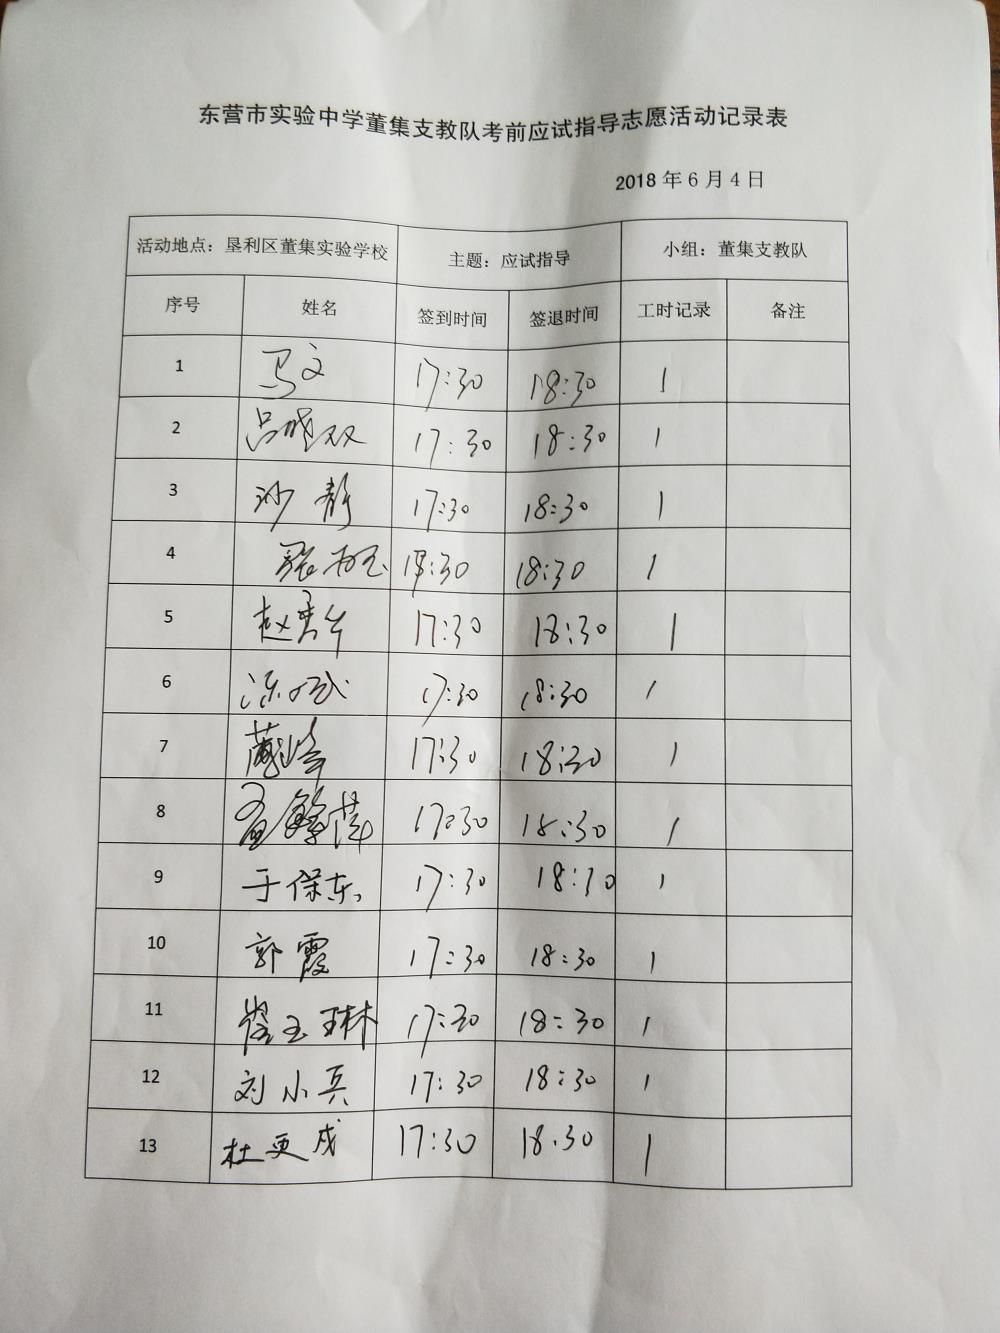 东营市实验中学董集支教队考前应试指导志愿活动记录表
2018 年 6 月 4 日
活动地点：垦利区董集实验学校 主题：应试指导 小组：董集支教队
序号 姓名 签到时间 签退时间 工时记录 备注
1 马文 17:30 18:30 1
2 吕晓双 17:30 18:30 1
3 沙静 17:30 18:30 1
4 18:30 1
5 17:30 18:30 1
6 17:30 18:30 1
7 17:30 18:30 1
8 17:30 18:30 1
9 于保东 17:30 18:30 1
10 郭霞 17:30 18:30 1
11 崔玉琳 17:30 18:30 1
12 刘小兵 17:30 18:30 1
13 17:30 18:30 1